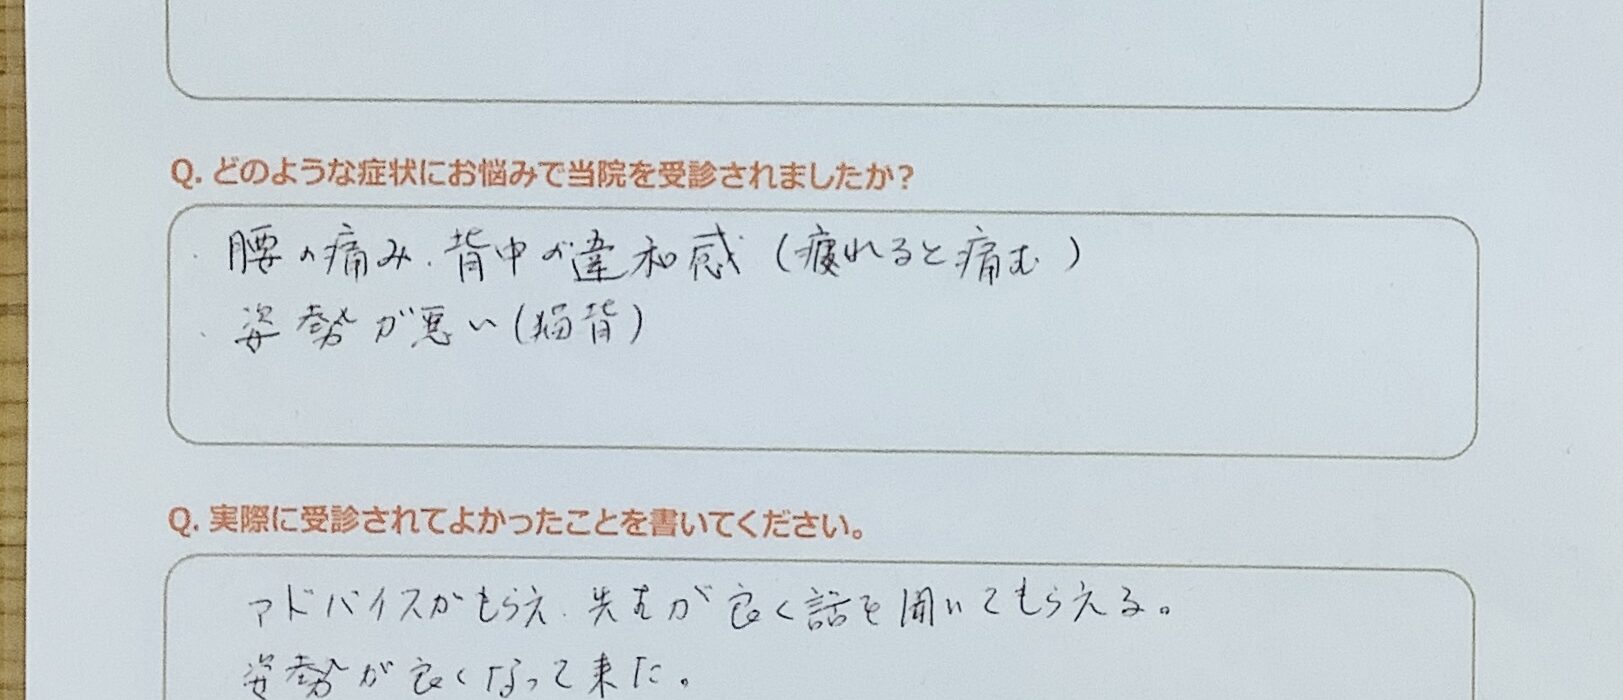 Q. どのような症状にお悩みで当院を受診されましたか？
・腰の痛み、背中の違和感（疲れると痛む）
・姿勢が悪い（猫背）
Q. 実際に受診されてよかったことを書いてください。
アドバイスがもらえ、先生が良く話を聞いてもらえる。
姿勢が良くなって来た。